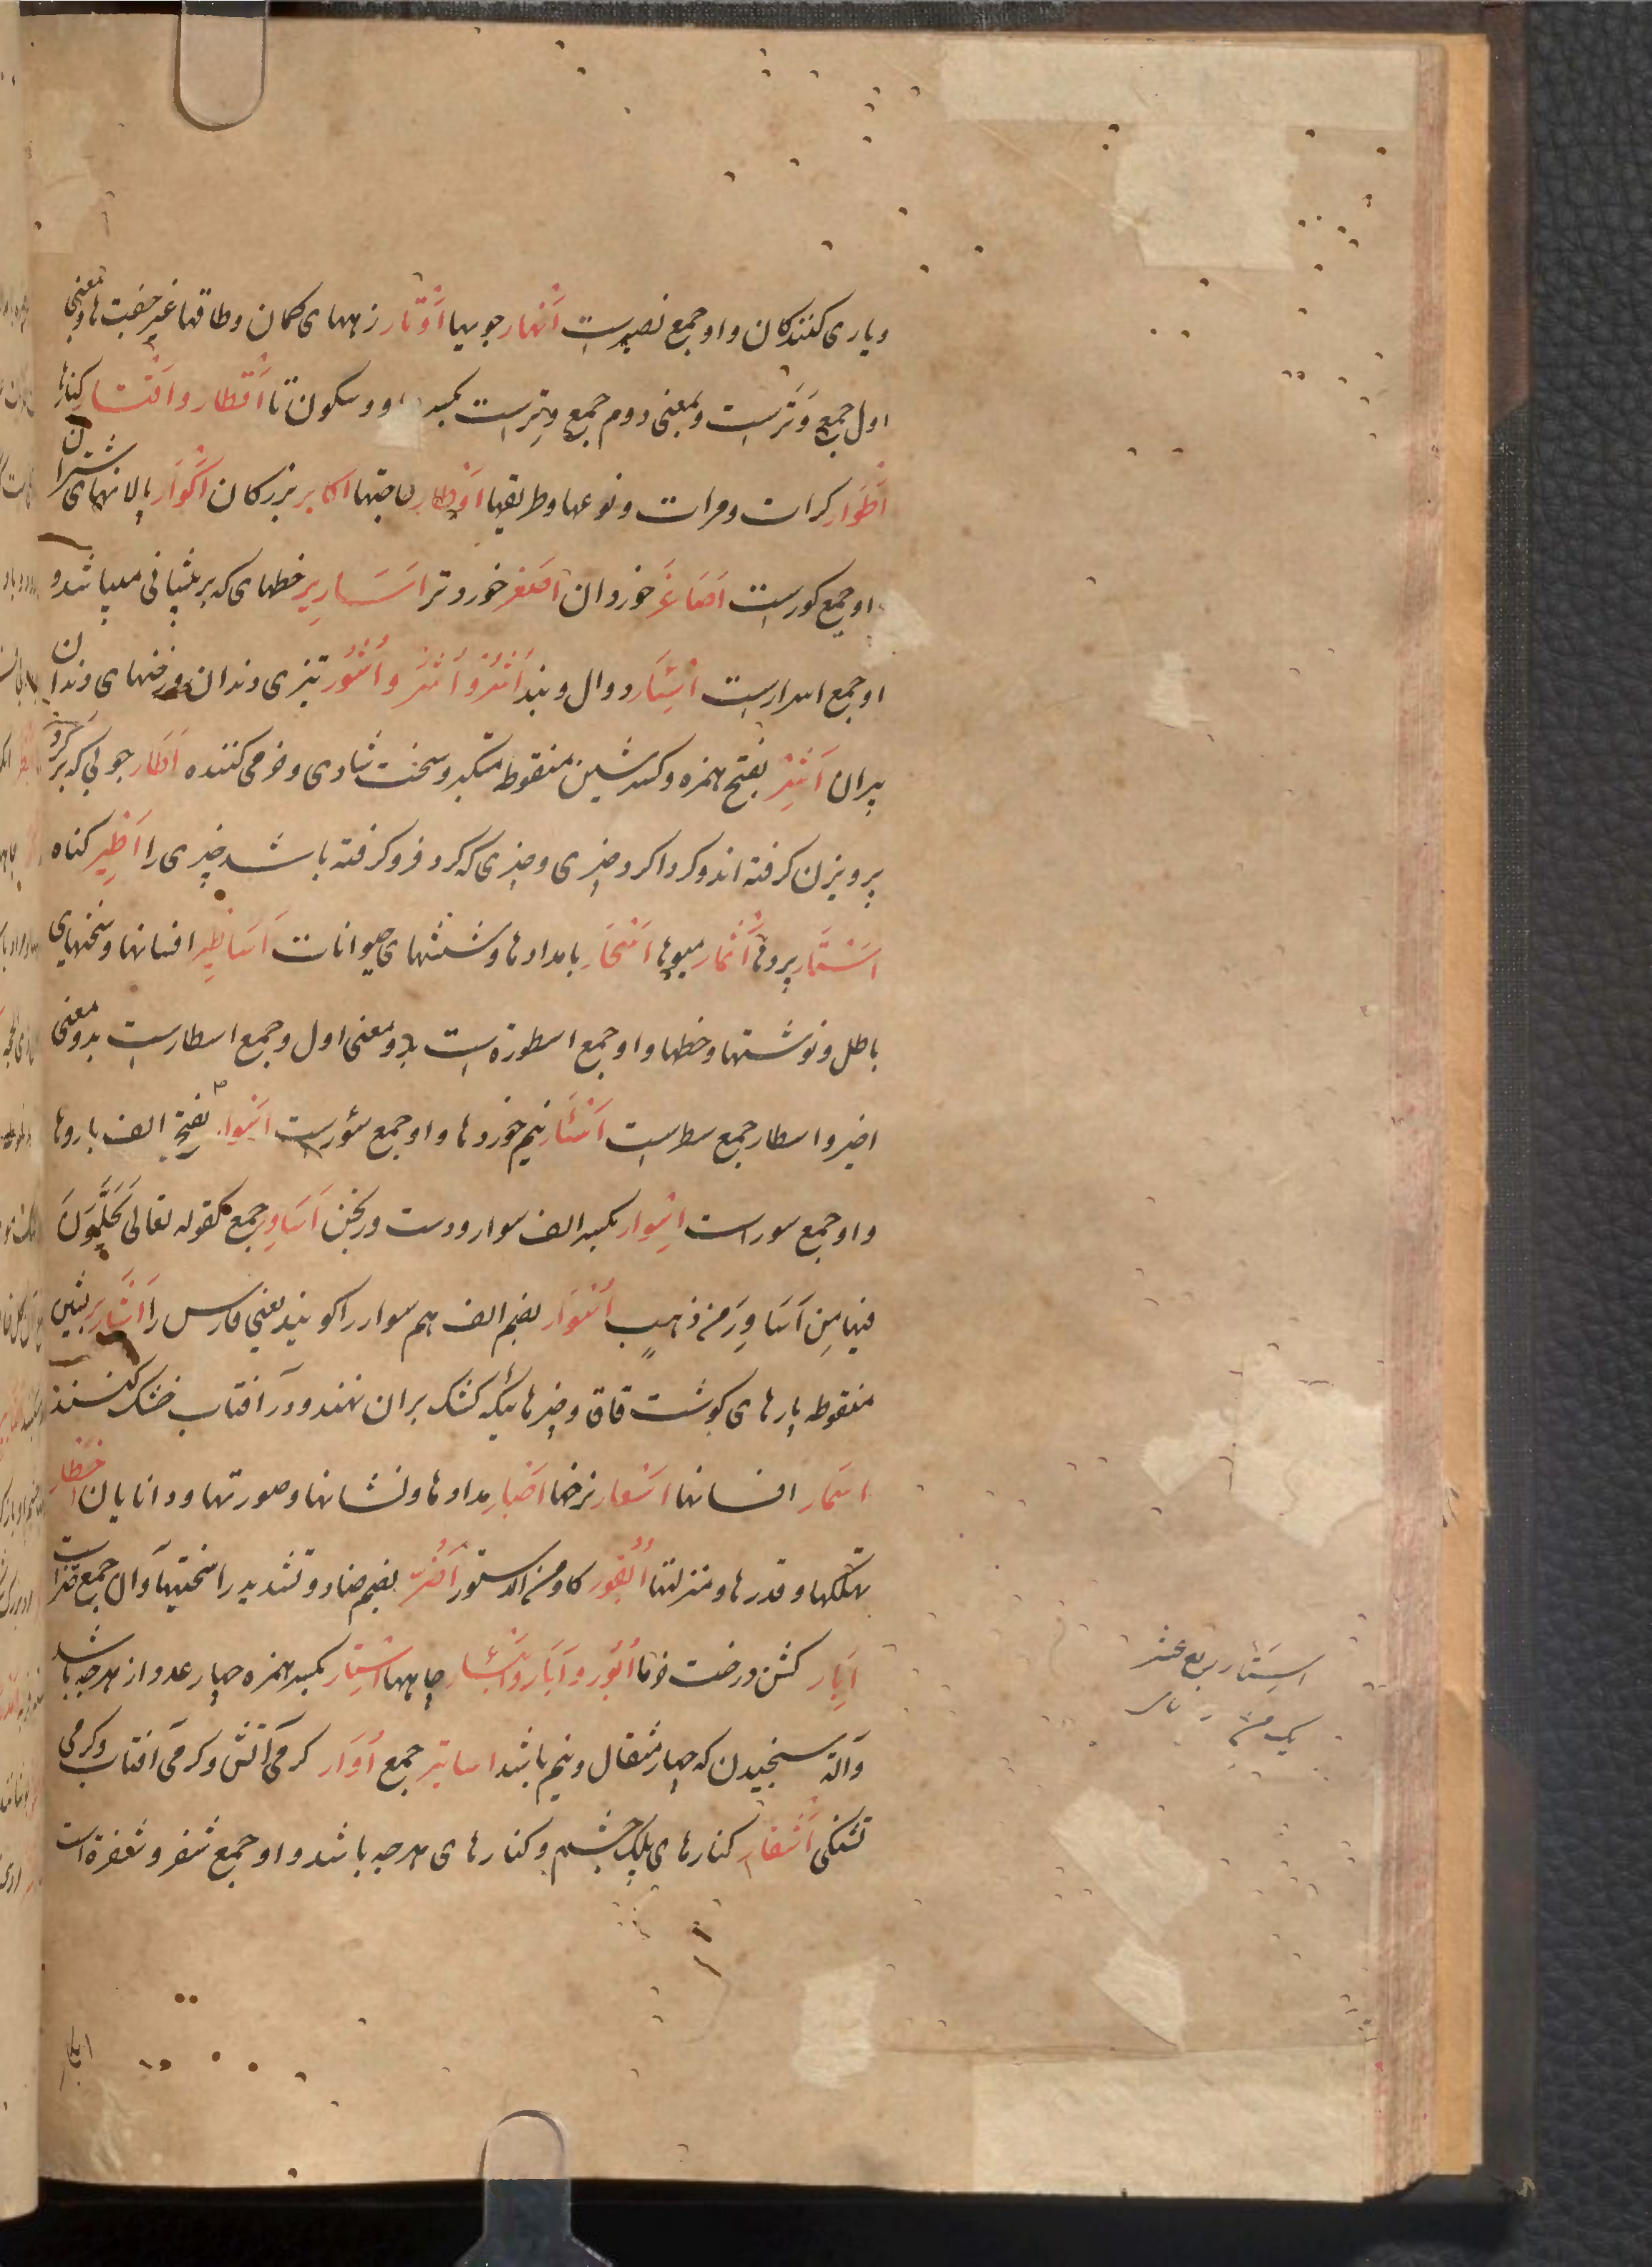 ویاری کنندکان واوجمع نصیرست اَنْهار جویها اَوْتار زههای کمان وطاقها غیر جفت ها وبمعنی
اول جمع وَتَرست وبمعنی دوم جمع وِترست بکسر واو وسکون تا اَقْطار واَقْتار کنارها
اَطْوَار کرات ومرات ونوعها وطریقها اَوْطار حاجتها اکابر بزرکان اَکْوَار پالانهای شتران
واوجمع کورست اَصَاغَر خوردان اَصْغر خوردتر اَسَارِیر خطهای که برپیشانی میباشد و
اوجمع اسرارست اِسَار دوال وبند اُشُر واُشَر واُشُور تیزی دندان ورخنهای دندان
بران اَشِر بفتح همزه وکسر شین منقوطه متکبر وسخت شادی وخرمی کننده اَطَار چوبی که برکرد
پرویزن کرفته اند وکرداکرد چیزی وچیزی که کرد فروکرفته باشد چیزی را اَطِیر کناه
اَسْتَار پردها اَثْمار میوها اَسْحَار بامدادها وشُشهای حیوانات اَسَاطِیر افسانها وسخنهای
باطل ونوشتها وخطها واوجمع اسطورة ست بدومعنی اول وجمع اسطارست بدومعنی
اخیر واسطار جمع سطرست اَسْئَار نیم خوردها واوجمع سؤرست اَسْوار بفتح الف باروها
واوجمع سورست اِسْوار بکسر الف سوار ودست ورنجن اَسَاوِر جمع کقوله تعالی یُحَلَّوْنَ
فیها مِن اَسَاوِرَ من ذهبٍ اُسْوَار بضم الف هم سوار را کویند یعنی فارس را اَشَارِیر بشین
منقوطه پارهای کوشت قاق وچیزهائیکه کشک بران نهند ودر آفتاب خشک کنند
اَسْمَار افسانها اَسْعار نرخها اَحْبار مدادها ونشانها وصورتها ودانایان اَخْطار
تهلکها وقدرها ومنزلتها اُبْقور کاو من الدستور اَضُرّ بضم ضاد وتشدید را سختیها وان جمع ضرّاست
اِبَار کشن درخت خرما اَبْؤُر وآبَار واَبْئار چاهها اِسْتار بکسر همزه چهار عدد از هرچه باشد
وآلة سنجیدن که چهار مثقال ونیم باشد اساتیر جمع اُوَار کرمی آتش وکرمی آفتاب وکرمی
تشنکی اَشْفار کنارهای پلک چشم وکنارهای هرچه باشد واوجمع شفر وشفرة است
استار ربع عشر
یک من